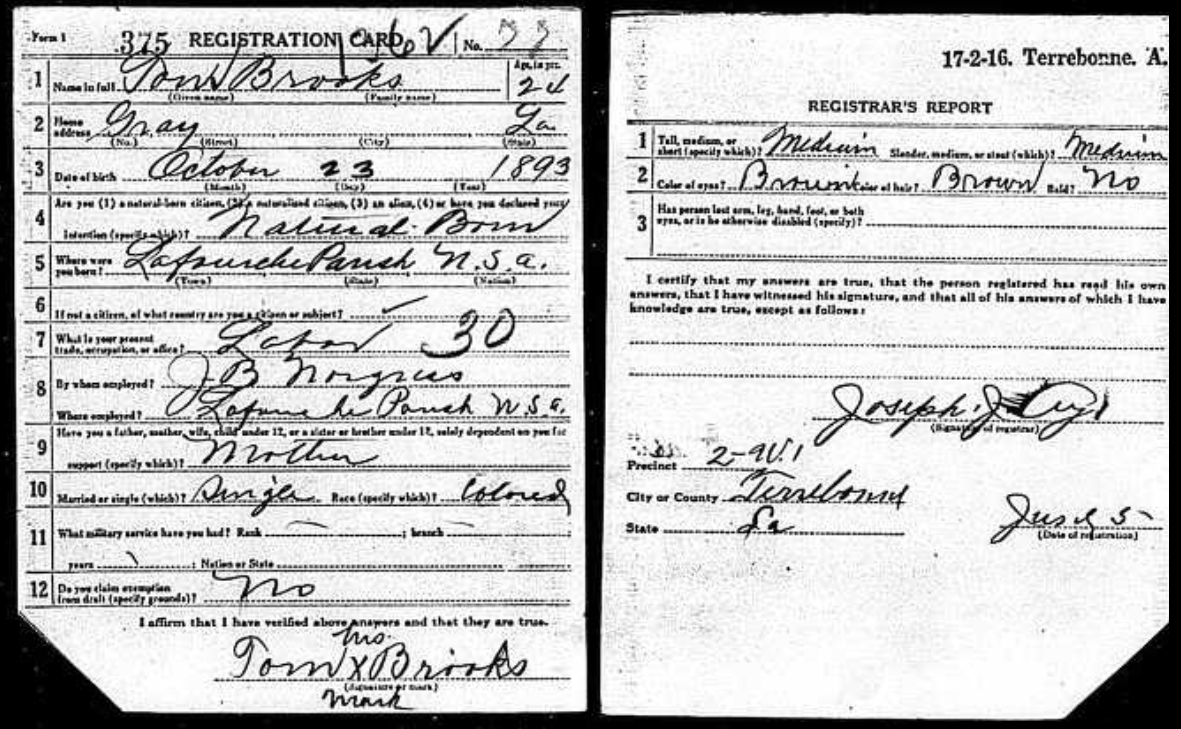 Form 1 375 REGISTRATION CARD No. 33
1 Name in full Tom Brooks Age, in yrs. 24
(Given name) (Family name)
2 Home address Gray La.
(No.) (Street) (City) (State)
3 Date of birth October 23 1893
(Month) (Day) (Year)
4 Are you (1) a natural-born citizen, (2) a naturalized citizen, (3) an alien, (4) or have you declared your
intention (specify which)? Natural-Born
5 Where were you born? Lafourche Parish U.S.a.
(Town) (State) (Nation)
6 If not a citizen, of what country are you a citizen or subject?
7 What is your present trade, occupation, or office? Labor 30
8 By whom employed? J B Norgress
Where employed? Lafourche Parish U.S.a.
9 Have you a father, mother, wife, child under 12, or a sister or brother under 12, solely dependent on you for
support (specify which)? Mother
10 Married or single (which)? Single Race (specify which)? Colored
11 What military service have you had? Rank ; branch
years ; Nation or State
12 Do you claim exemption from draft (specify grounds)? No
I affirm that I have verified above answers and that they are true.
his
Tom X Brooks
(Signature or mark)
mark
17-2-16. Terrebonne. A.
REGISTRAR'S REPORT
1 Tall, medium, or short (specify which)? Medium Slender, medium, or stout (which)? Medium
2 Color of eyes? Brown Color of hair? Brown Bald? No
3 Has person lost arm, leg, hand, foot, or both eyes, or is he otherwise disabled (specify)?
I certify that my answers are true, that the person registered has read his own
answers, that I have witnessed his signature, and that all of his answers of which I have
knowledge are true, except as follows:
Joseph J
(Signature of registrar)
Precinct 2-W.1
City or County Terrebonne
State La
June 5
(Date of registration)